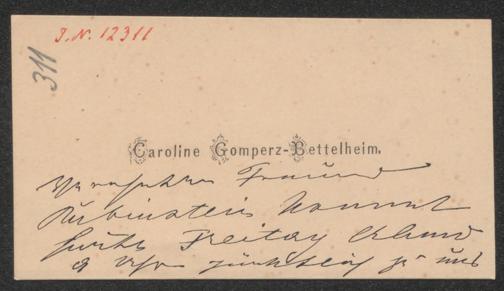 J.N. 12311
311
Caroline Gomperz-Bettelheim.
Verehrter Freund
Rubinstein kommt
heute Freitag Abend
9 Uhr pünktlich zu uns